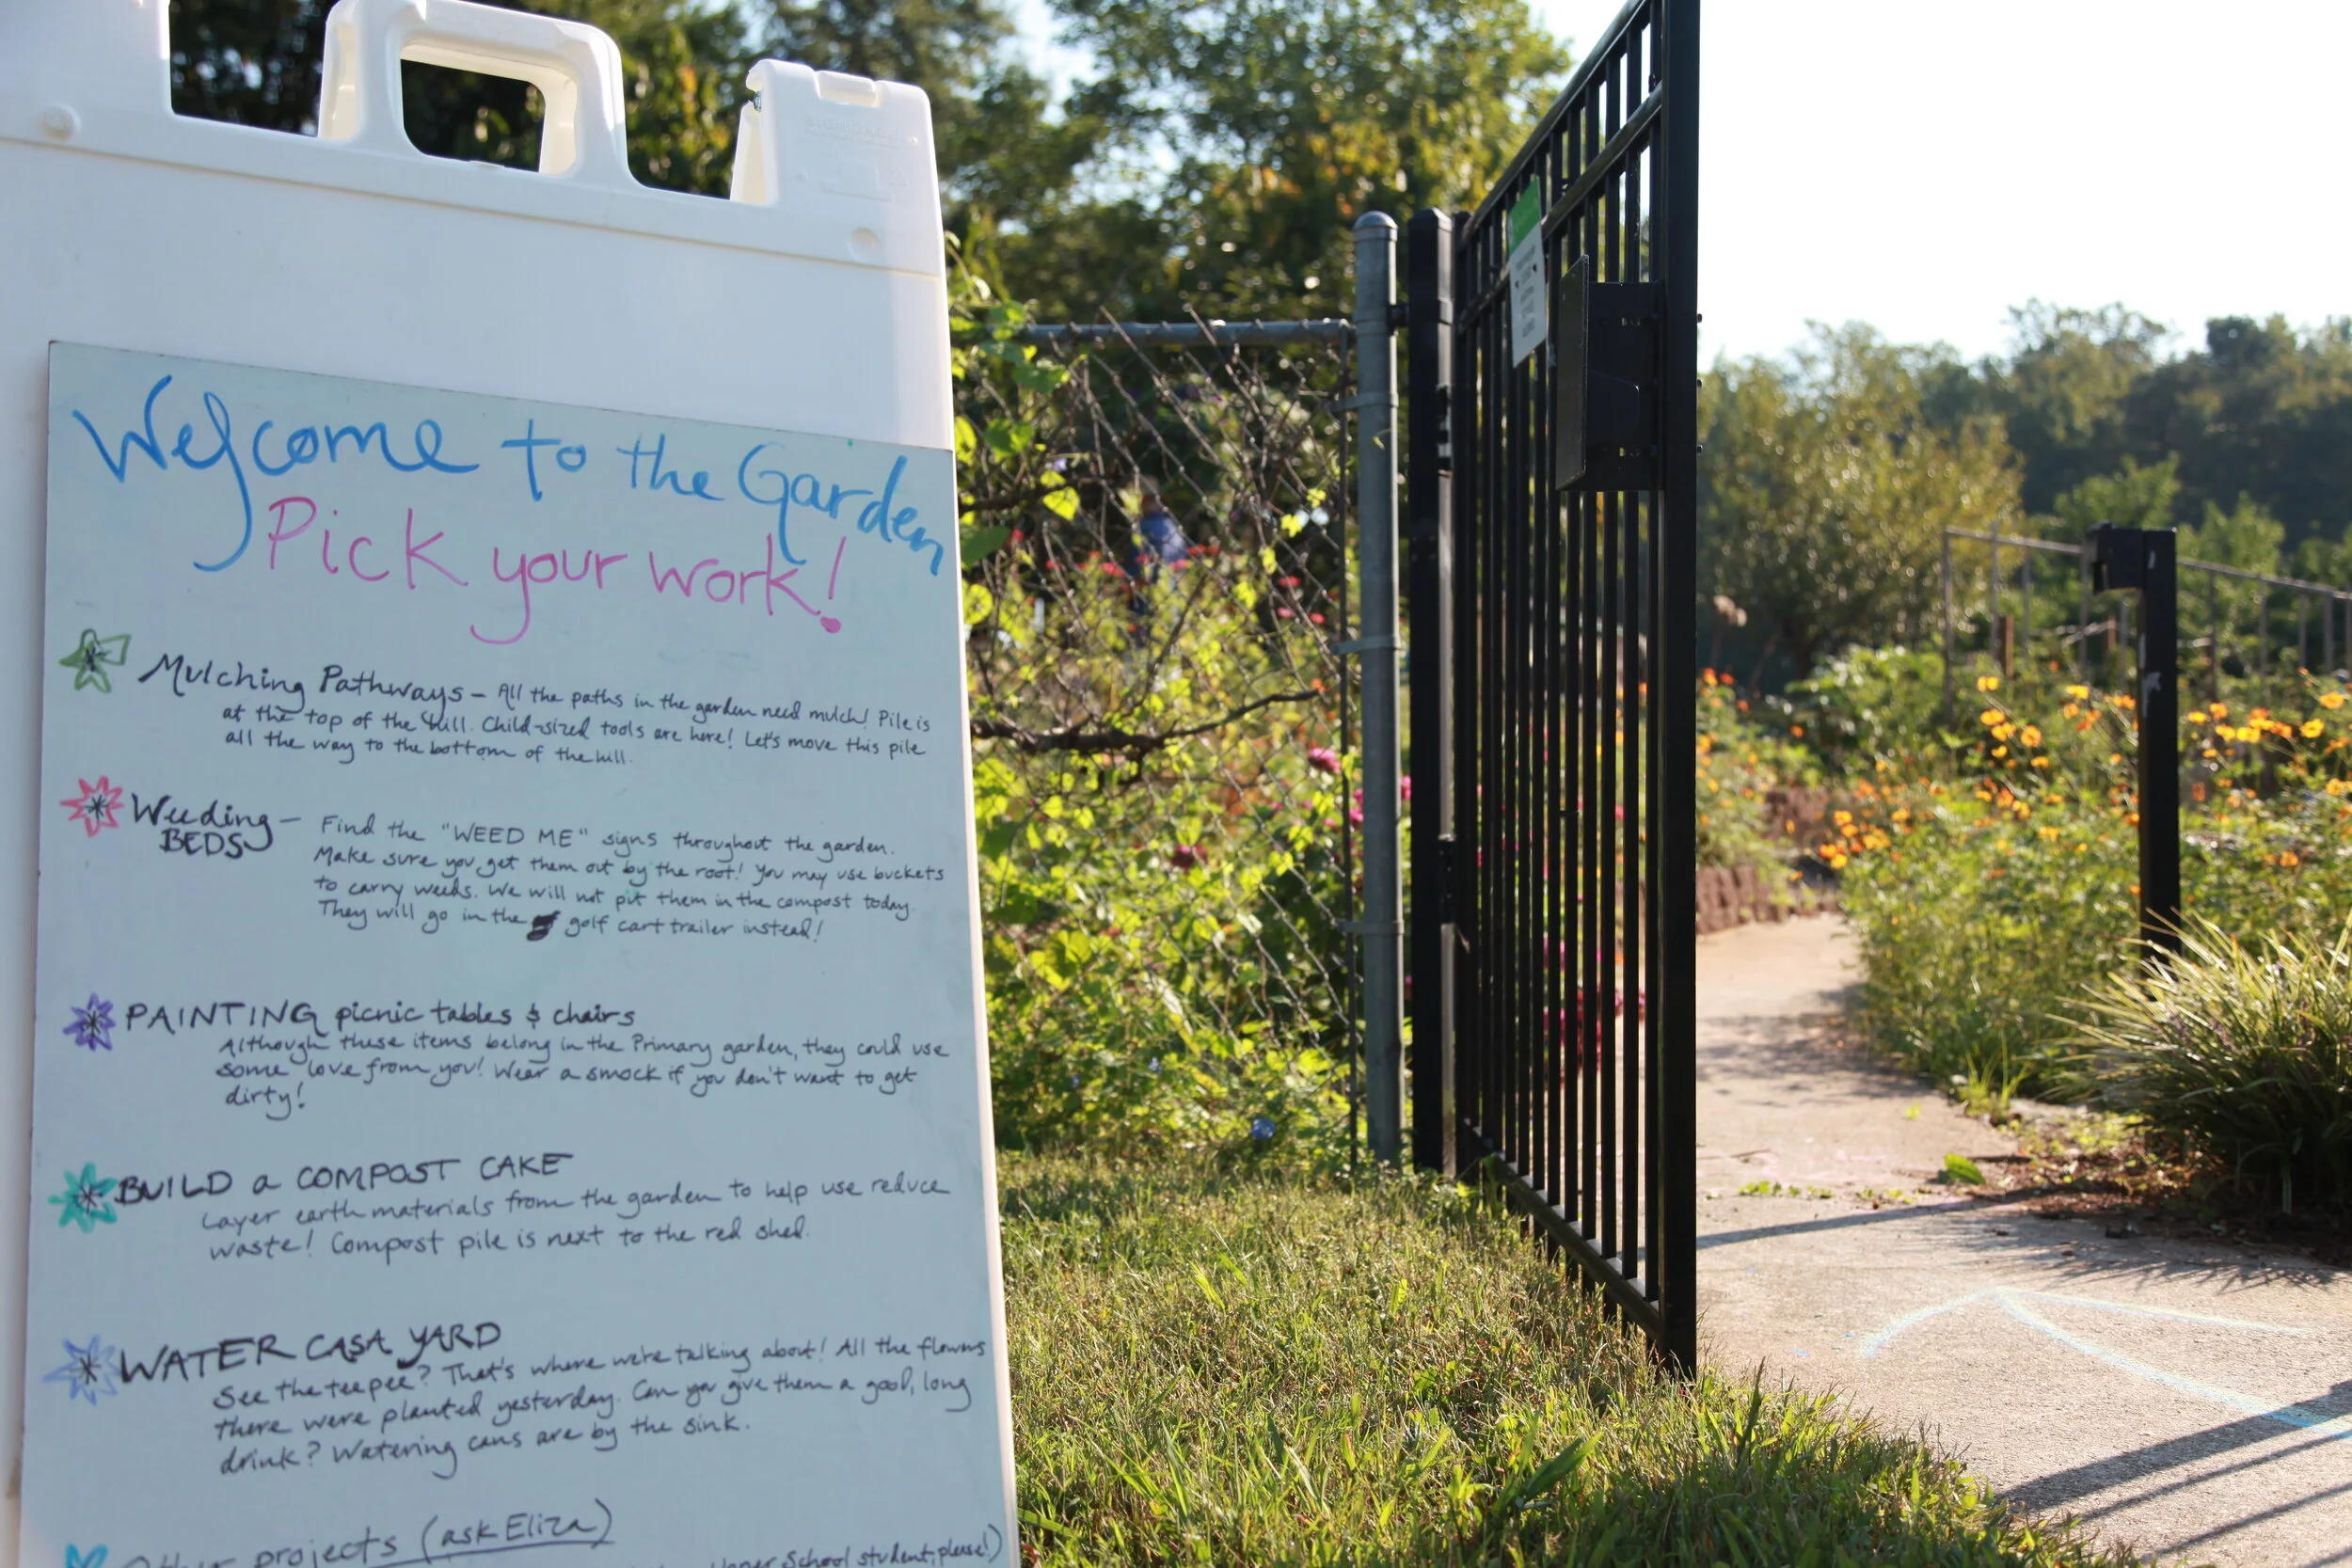 Welcome to the Garden
Pick your work!
Mulching Pathways – All the paths in the garden need mulch! Pile is
at the top of the hill. Child-sized tools are here! Let's move this pile
all the way to the bottom of the hill.
Weeding – BEDS
Find the "WEED ME" signs throughout the garden.
Make sure you get them out by the root! You may use buckets
to carry weeds. We will not put them in the compost today.
They will go in the golf cart trailer instead!
PAINTING picnic tables & chairs
Although these items belong in the Primary garden, they could use
some love from you! Wear a smock if you don't want to get
dirty!
BUILD a COMPOST CAKE
Layer earth materials from the garden to help use reduce
waste! Compost pile is next to the red shed.
WATER CASA YARD
See the teepee? That's where we're talking about! All the flowers
there were planted yesterday. Can you give them a good, long
drink? Watering cans are by the sink.
Other projects (ask Eliza)
Upper School student, please!)